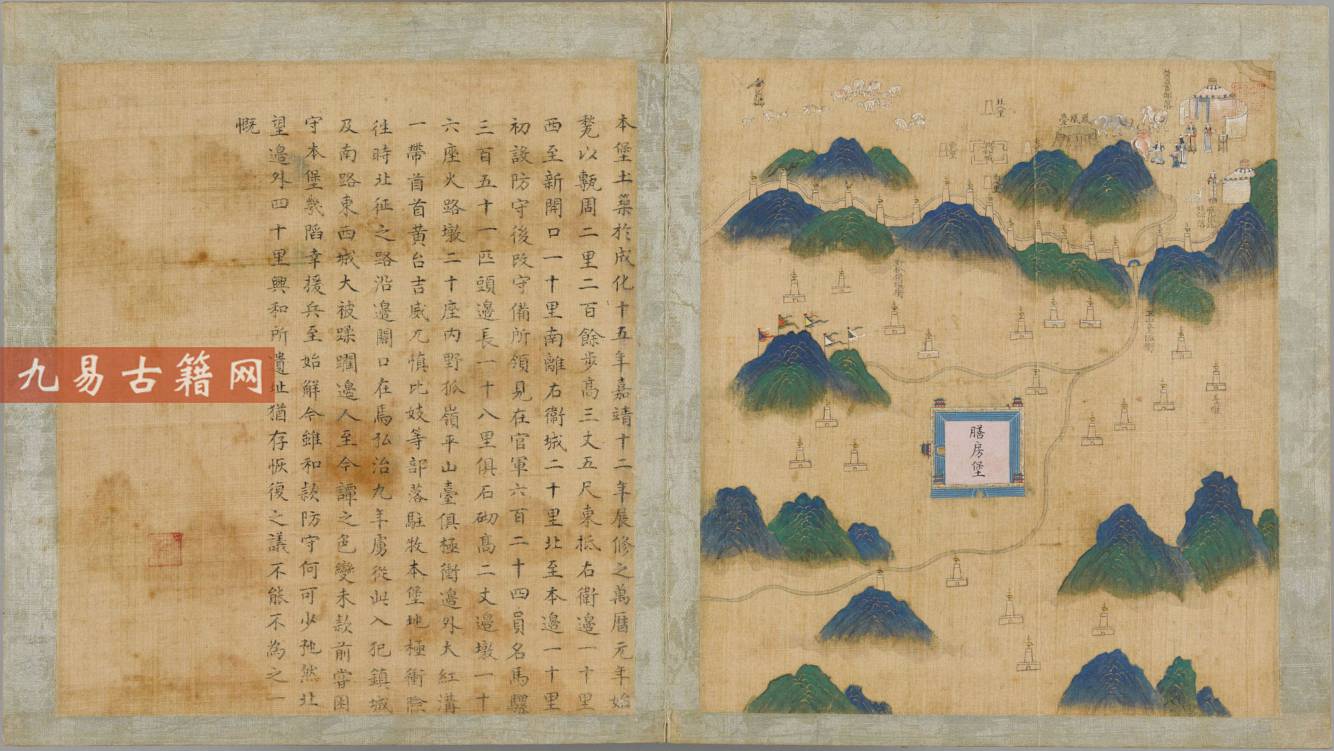 本堡土築於成化十五年嘉靖十二年展修之萬曆元年始
甃以甎周二里二百餘步高三丈五尺東抵右衛邊一十里
西至新開口一十里南離右衛城二十里北至本邊一十里
初設防守後改守備所領見在官軍六百二十四員名馬騾
三百五十一匹頭邊長一十八里俱石砌高二丈邊墩一十
六座火路墩二十座內野狐嶺平山臺俱極衝邊外大紅溝
一帶酋首黃台吉威兀慎比妓等部落駐牧本堡地極衝險
往時北征之路沿邊關口在焉弘治九年虜從此入犯鎮城
及南路東西城大被蹂躪邊人至今譚之色變未款前嘗困
守本堡幾陷幸援兵至始解今雖和款防守何可少弛然北
望邊外四十里興和所遺址猶存恢復之議不能不為之一
慨
膳房堡
九易古籍网